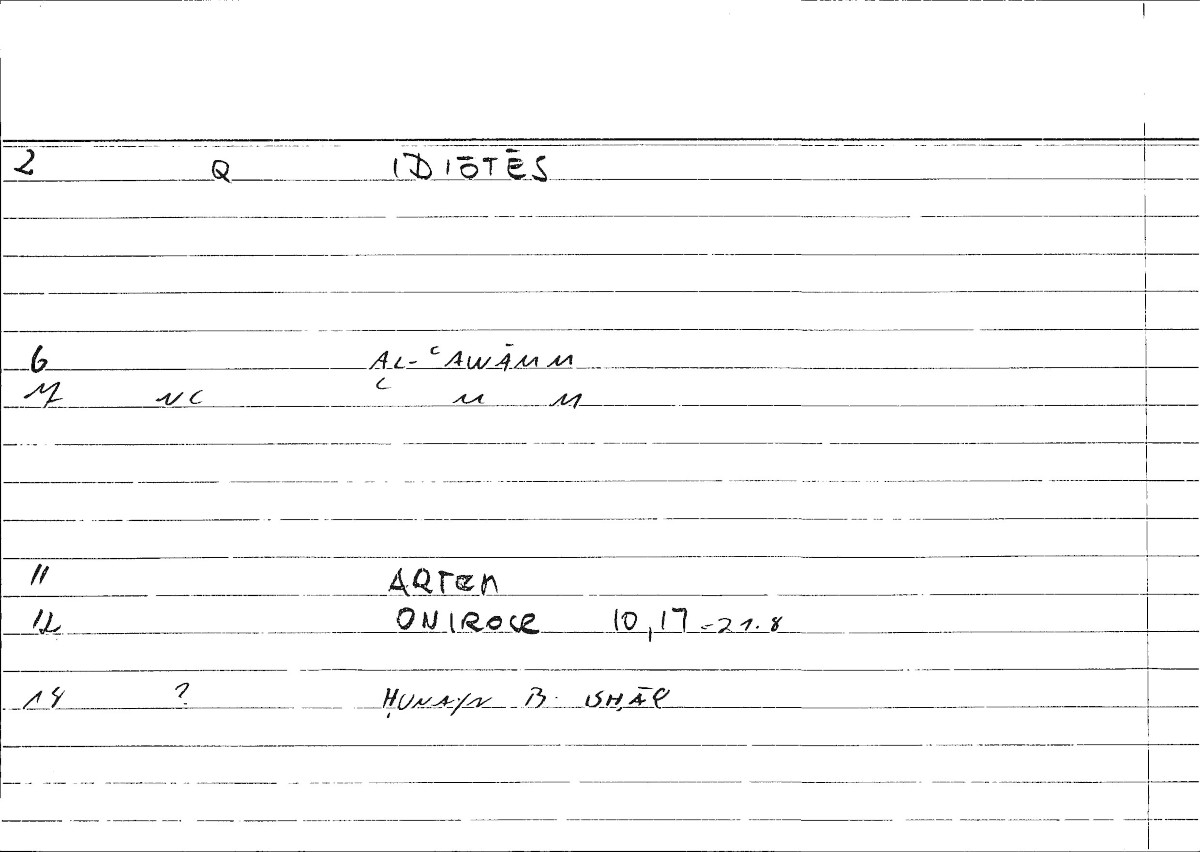 2 Q IDIŌTĒS
6 AL-ʿAWĀMM
7 NC ʿ M M
11 ARTEM
12 ONIROCR 10,17-21.8
14 ? ḤUNAYN B. ISḤĀQ